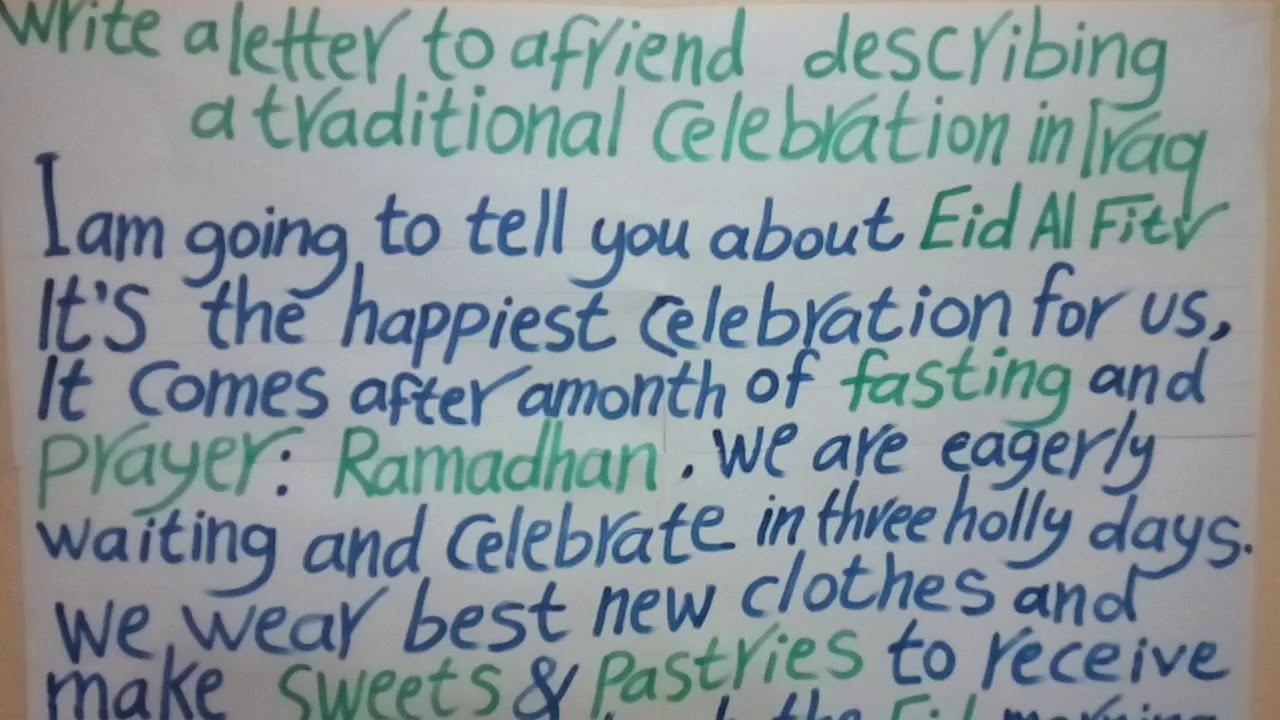 Write a letter to a friend describing
a traditional Celebration in Iraq
I am going to tell you about Eid Al Fitr
It's the happiest Celebration for us,
It Comes after amonth of fasting and
Prayer: Ramadhan . We are eagerly
waiting and Celebrate in three holly days.
We wear best new clothes and
make Sweets & Pastries to receive
the Eid morning